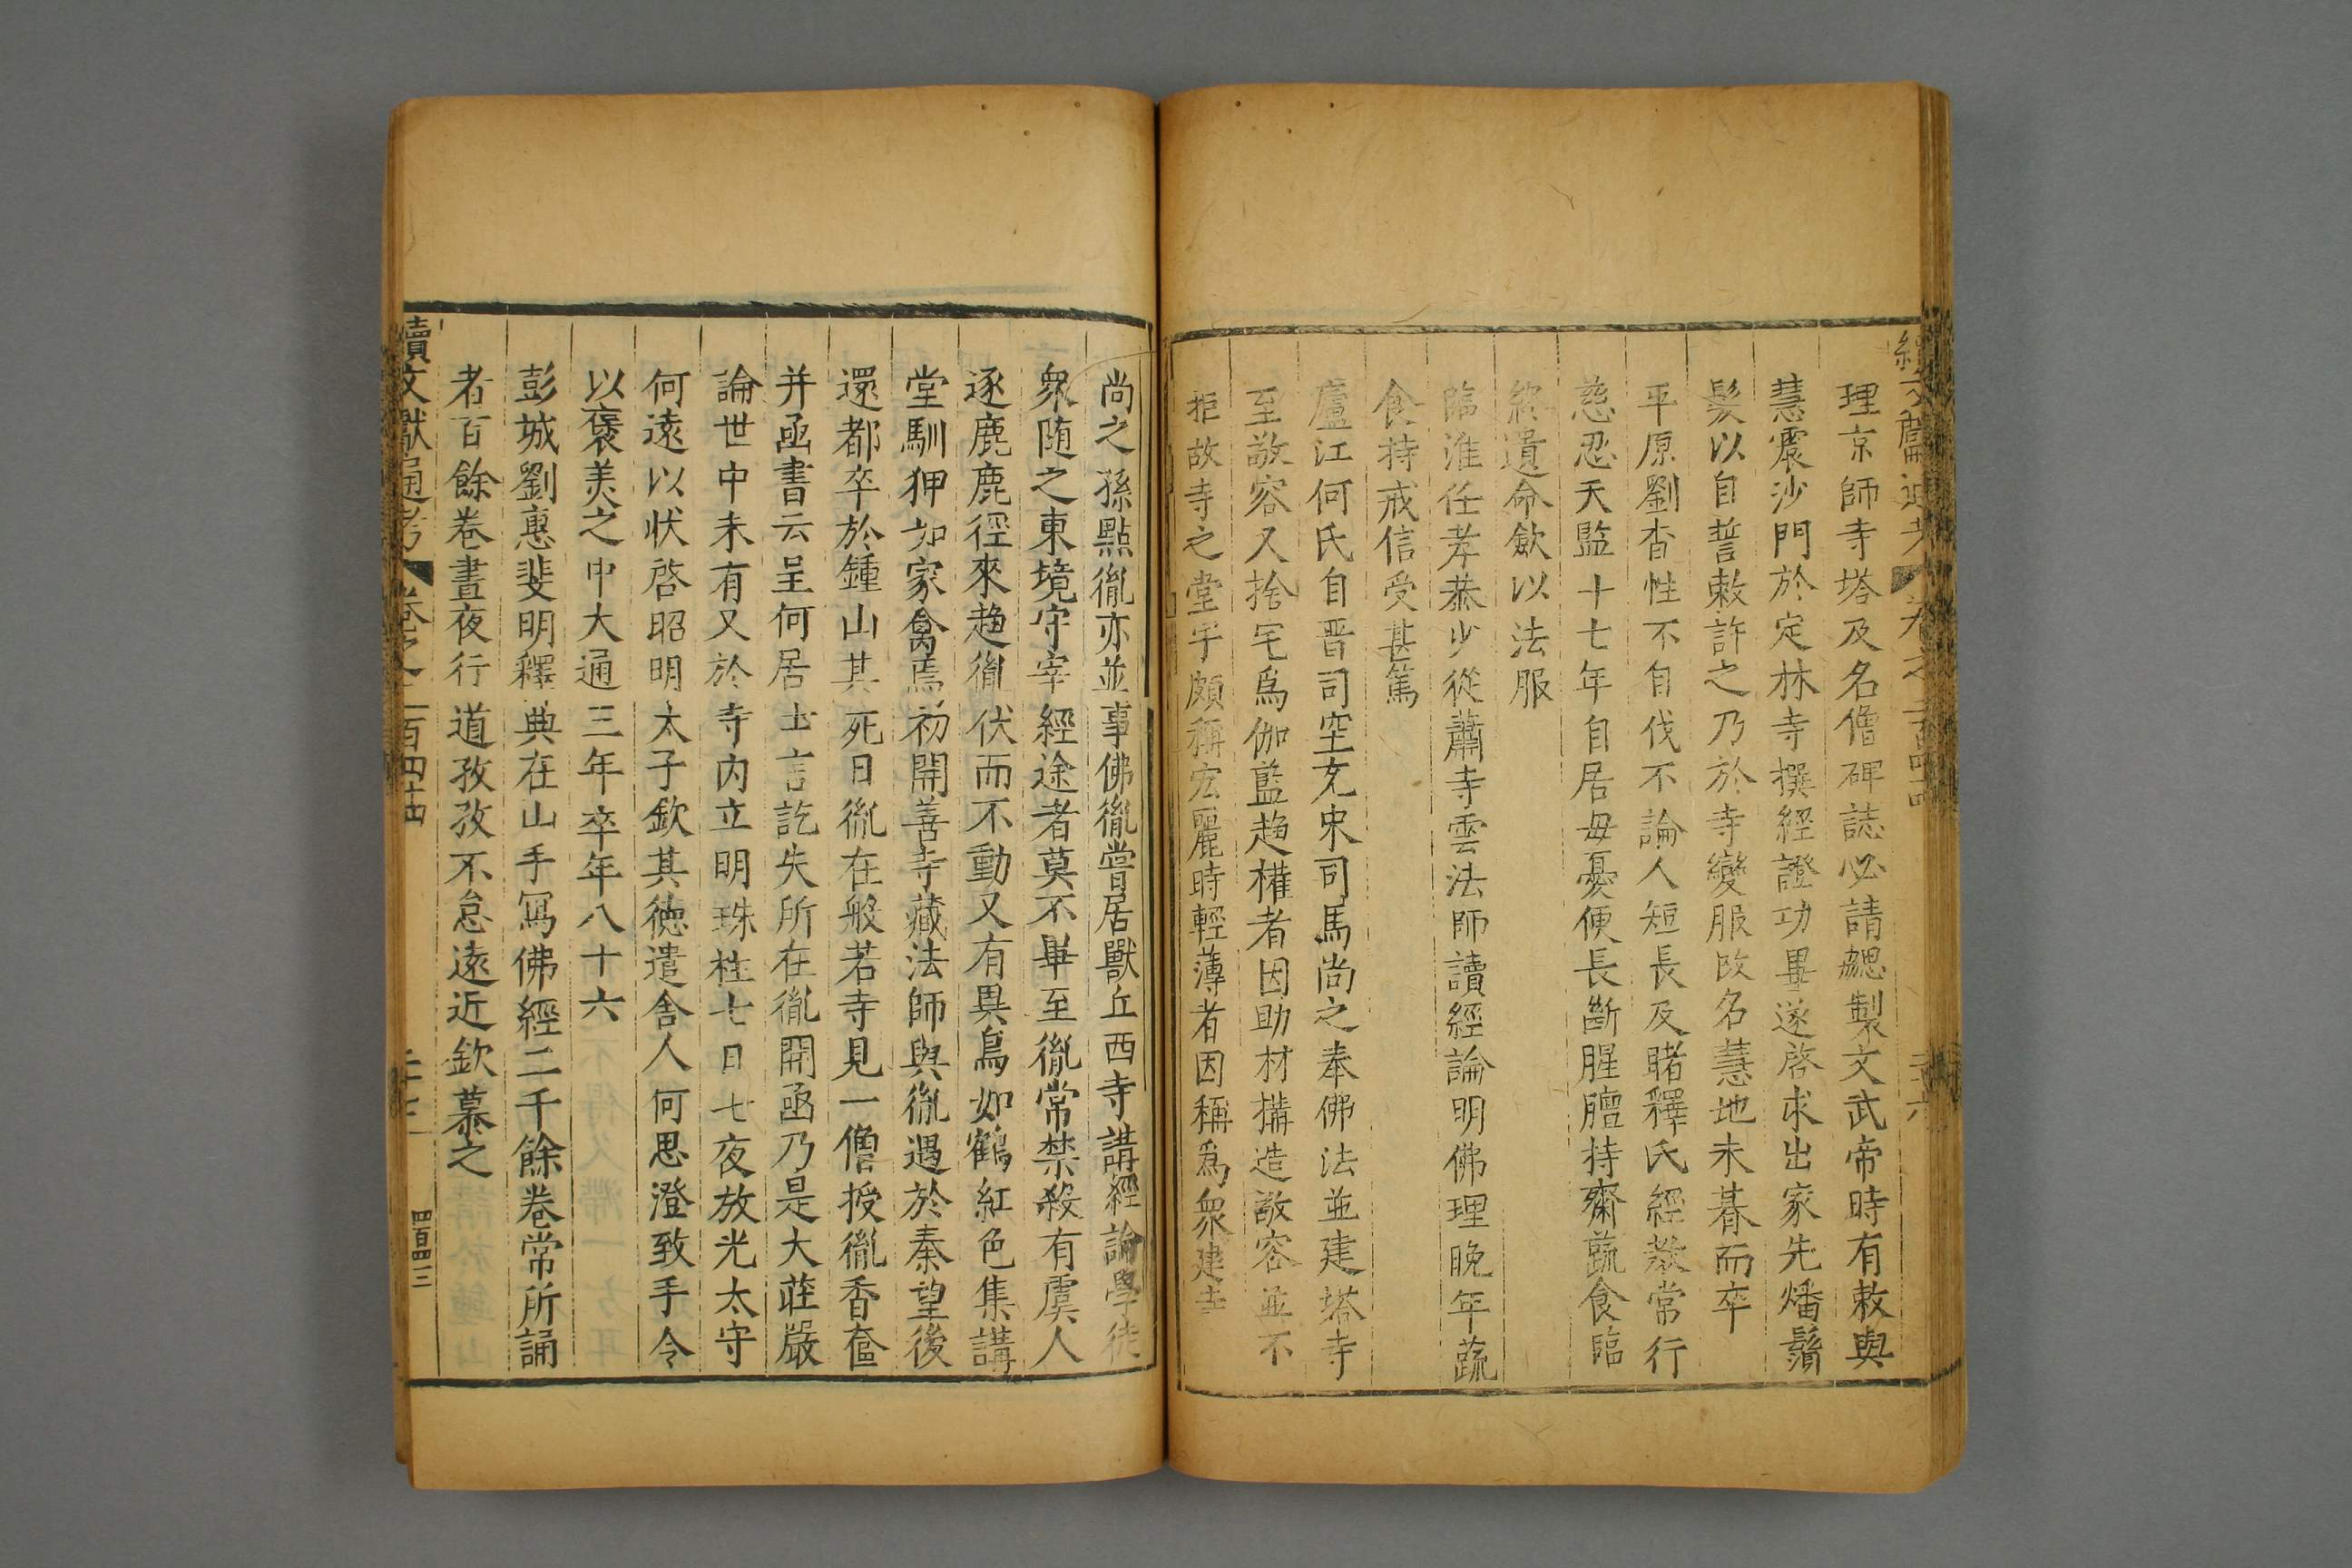 續文獻通考 卷之二百四十四
理京師寺塔及名僧碑誌必請勰製文武帝時有敕與
慧震沙門於定林寺撰經證功畢遂啓求出家先燔鬚
髮以自誓敕許之乃於寺變服改名慧地未朞而卒
平原劉杳性不自伐不論人短長及睹釋氏經教常行
慈忍天監十七年自居母憂便長斷腥膻持齋蔬食臨
終遺命斂以法服
臨淮任孝恭少從蕭寺雲法師讀經論明佛理晚年蔬
食持戒信受甚篤
廬江何氏自晋司空充宋司馬尚之奉佛法並建塔寺
至敬容又捨宅爲伽藍趨權者因助材搆造敬容並不
拒故寺之堂宇頗稱宏麗時輕薄者因稱爲眾建寺
尚之孫點胤亦並事佛胤嘗居獸丘西寺講經論學徒
衆随之東境守宰經途者莫不畢至胤常禁殺有虞人
逐鹿鹿徑來趨胤伏而不動又有異鳥如鶴紅色集講
堂馴狎如家禽焉初開善寺藏法師與胤遇於秦望後
還都卒於鍾山其死日胤在般若寺見一僧授胤香奩
并函書云呈何居士言訖失所在胤開函乃是大莊嚴
論世中未有又於寺内立明珠柱七日七夜放光太守
何遠以状啓昭明太子欽其德遣舎人何思澄致手令
以褒美之中大通三年卒年八十六
彭城劉惠斐明釋典在山手寫佛經二千餘卷常所誦
者百餘卷晝夜行道孜孜不怠遠近欽慕之
續文獻通考 卷之二百四十四 二十七 四百四三